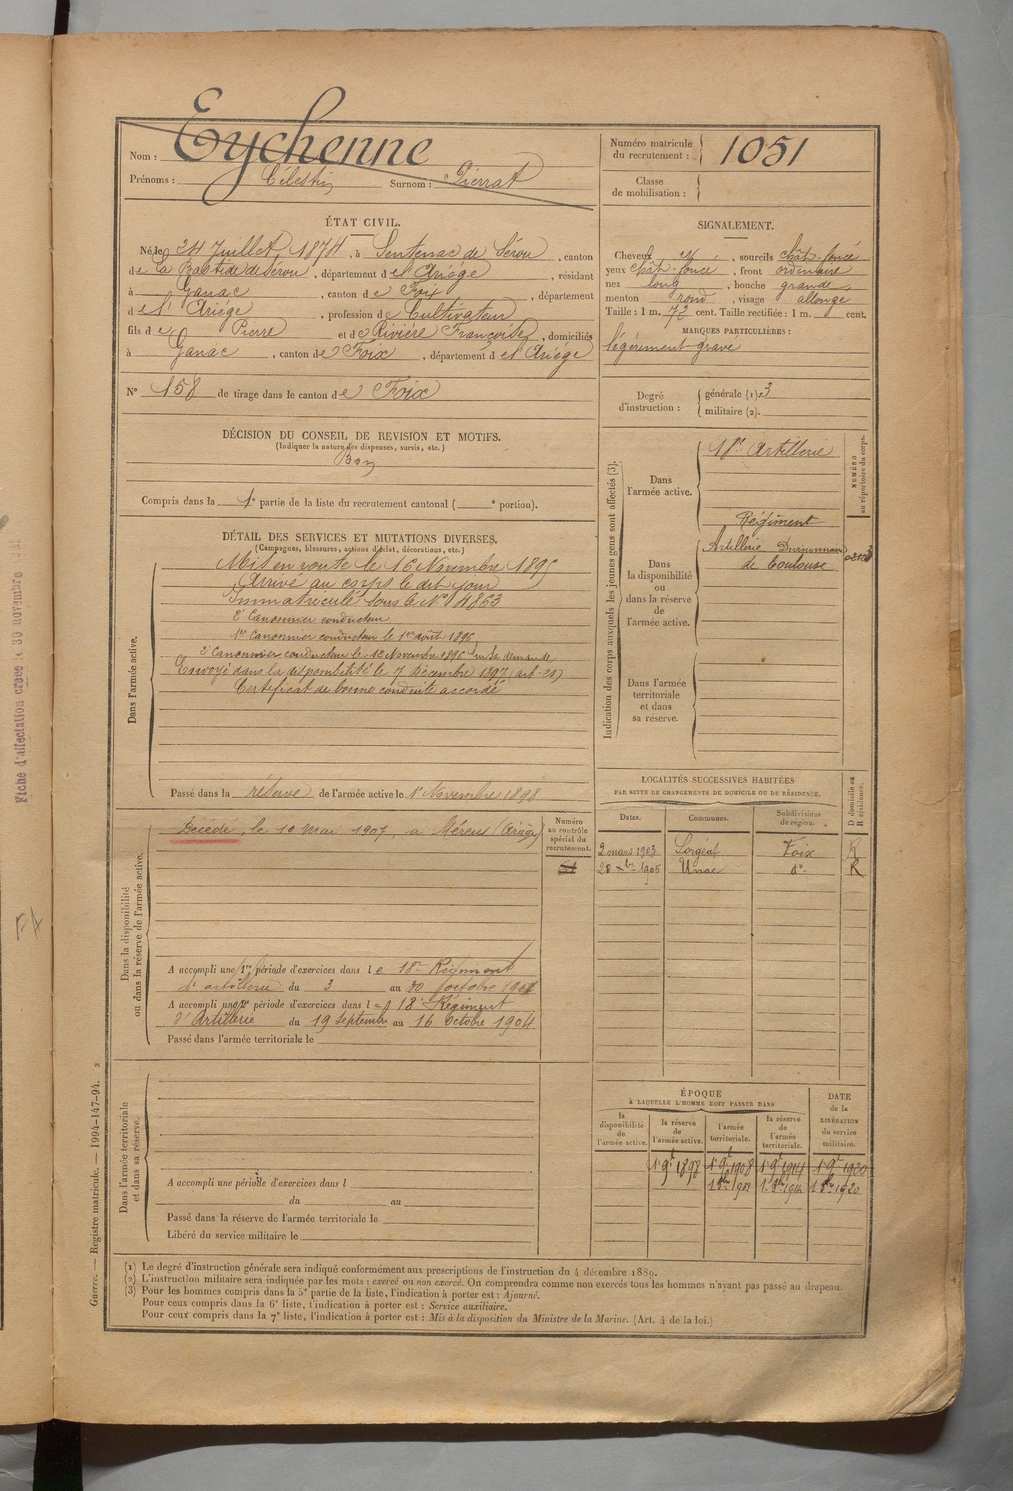 Nom : Eychenne
Prénoms : Célestin Surnom : Pierrat
Numéro matricule du recrutement : 1051
Classe de mobilisation :
ÉTAT CIVIL.
Né le 24 Juillet 1874, à Sentenac de Sérou, canton
de La Bastide de Sérou, département de l'Ariège, résidant
à Ganac, canton de Foix, département
de l'Ariège, profession de Cultivateur
fils de Pierre et de Rivière Françoise, domiciliés
à Ganac, canton de Foix, département de l'Ariège
N° 158 de tirage dans le canton de Foix
SIGNALEMENT.
Cheveux et, sourcils chât-foncé
yeux chât-foncé, front ordinaire
nez long, bouche grande,
menton rond, visage allongé
Taille : 1 m. 72 cent. Taille rectifiée : 1 m. cent.
MARQUES PARTICULIÈRES :
légèrement gravé
Degré d'instruction : générale (1). 3
militaire (2).
DÉCISION DU CONSEIL DE REVISION ET MOTIFS.
(Indiquer la nature des dispenses, sursis, etc.)
Bon
Compris dans la 1e partie de la liste du recrutement cantonal ( e portion).
DÉTAIL DES SERVICES ET MUTATIONS DIVERSES.
(Campagnes, blessures, actions d'éclat, décorations, etc.)
Dans l'armée active.
Mis en route le 16 Novembre 1895
Arrivé au corps le dit jour
Immatriculé sous le N° 4863
2e Canonnier conducteur
1er Canonnier conducteur le 1er août 1896
2e Canonnier conducteur le 12 Novembre 1896 sur sa demande
Envoyé dans la disponibilité le 7 Décembre 1897 (art-20)
Certificat de bonne conduite accordé
Passé dans la réserve de l'armée active le 1 Novembre 1898
Indication des corps auxquels les jeunes gens sont affectés (3).
NUMÉRO au répertoire du corps.
Dans l'armée active.
18e Artillerie
Dans la disponibilité ou dans la réserve de l'armée active.
Régiment
Artillerie
de Toulouse
Dans l'armée territoriale et dans sa réserve.
LOCALITÉS SUCCESSIVES HABITÉES
PAR SUITE DE CHANGEMENTS DE DOMICILE OU DE RÉSIDENCE.
Dates. Communes. Subdivisions de région. D domicile ou R résidence.
2 mars 1903 Sorgeat Foix R
20 Xbre 1905 Unac do R
Dans la disponibilité ou dans la réserve de l'armée active.
Numéro au contrôle spécial du recrutement.
Décédé, le 10 mai 1907, à Mérens (Ariège)
A accompli une 1re période d'exercices dans le 18me Régiment
d'artillerie du 3 au 30 octobre 1901
A accompli une 2e période d'exercices dans le 18e Régiment
d'Artillerie du 19 septembre au 16 octobre 1904
Passé dans l'armée territoriale le
Dans l'armée territoriale et dans sa réserve.
A accompli une période d'exercices dans l
du au
Passé dans la réserve de l'armée territoriale le
Libéré du service militaire le
ÉPOQUE
À LAQUELLE L'HOMME DOIT PASSER DANS
la disponibilité de l'armée active. la réserve de l'armée active. l'armée territoriale. la réserve de l'armée territoriale.
DATE de la LIBÉRATION du service militaire.
1 9bre 1898 1 9bre 1908 1 9bre 1914 1 9bre 1920
(1) Le degré d'instruction générale sera indiqué conformément aux prescriptions de l'instruction du 4 décembre 1889.
(2) L'instruction militaire sera indiquée par les mots : exercé ou non exercé. On comprendra comme non exercés tous les hommes n'ayant pas passé au drapeau.
(3) Pour les hommes compris dans la 5e partie de la liste, l'indication à porter est : Ajourné.
Pour ceux compris dans la 6e liste, l'indication à porter est : Service auxiliaire.
Pour ceux compris dans la 7e liste, l'indication à porter est : Mis à la disposition du Ministre de la Marine. (Art. 4 de la loi.)
Guerre. — Registre matricule. — 1994-147-94. 2
Fiche d'affectation créée le 30 novembre